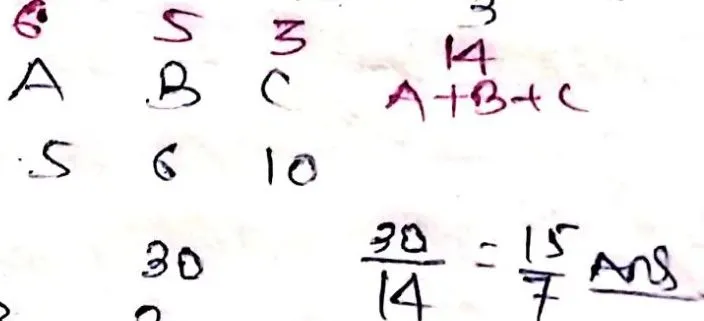 6 5 3 3
14
A B C A+B+C
5 6 10
30 30/14 = 15/7 Ans